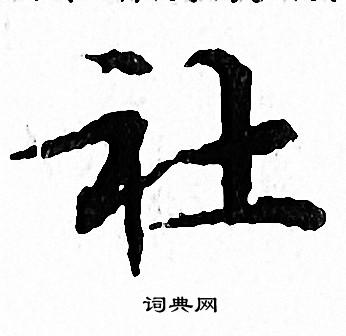 社
词典网